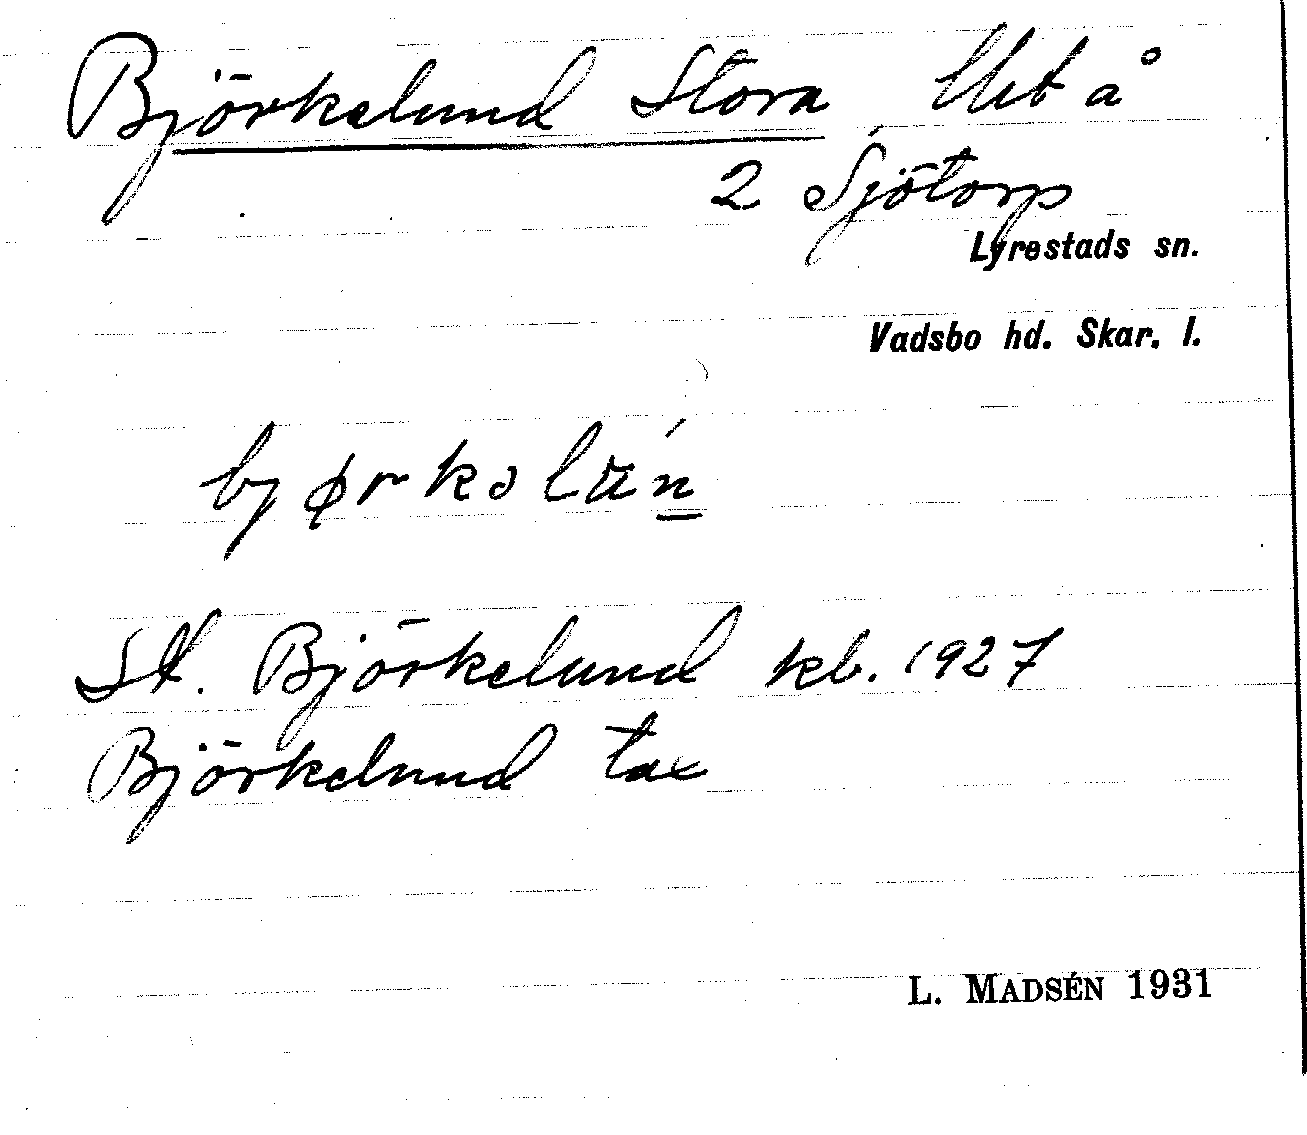 Björkelund Stora, Uet å
2 Sjötorp
Lyrestads sn.
Vadsbo hd. Skar. l.
St. Björkelund kb. 1927
Björkelund tax
L. MADSÉN 1931